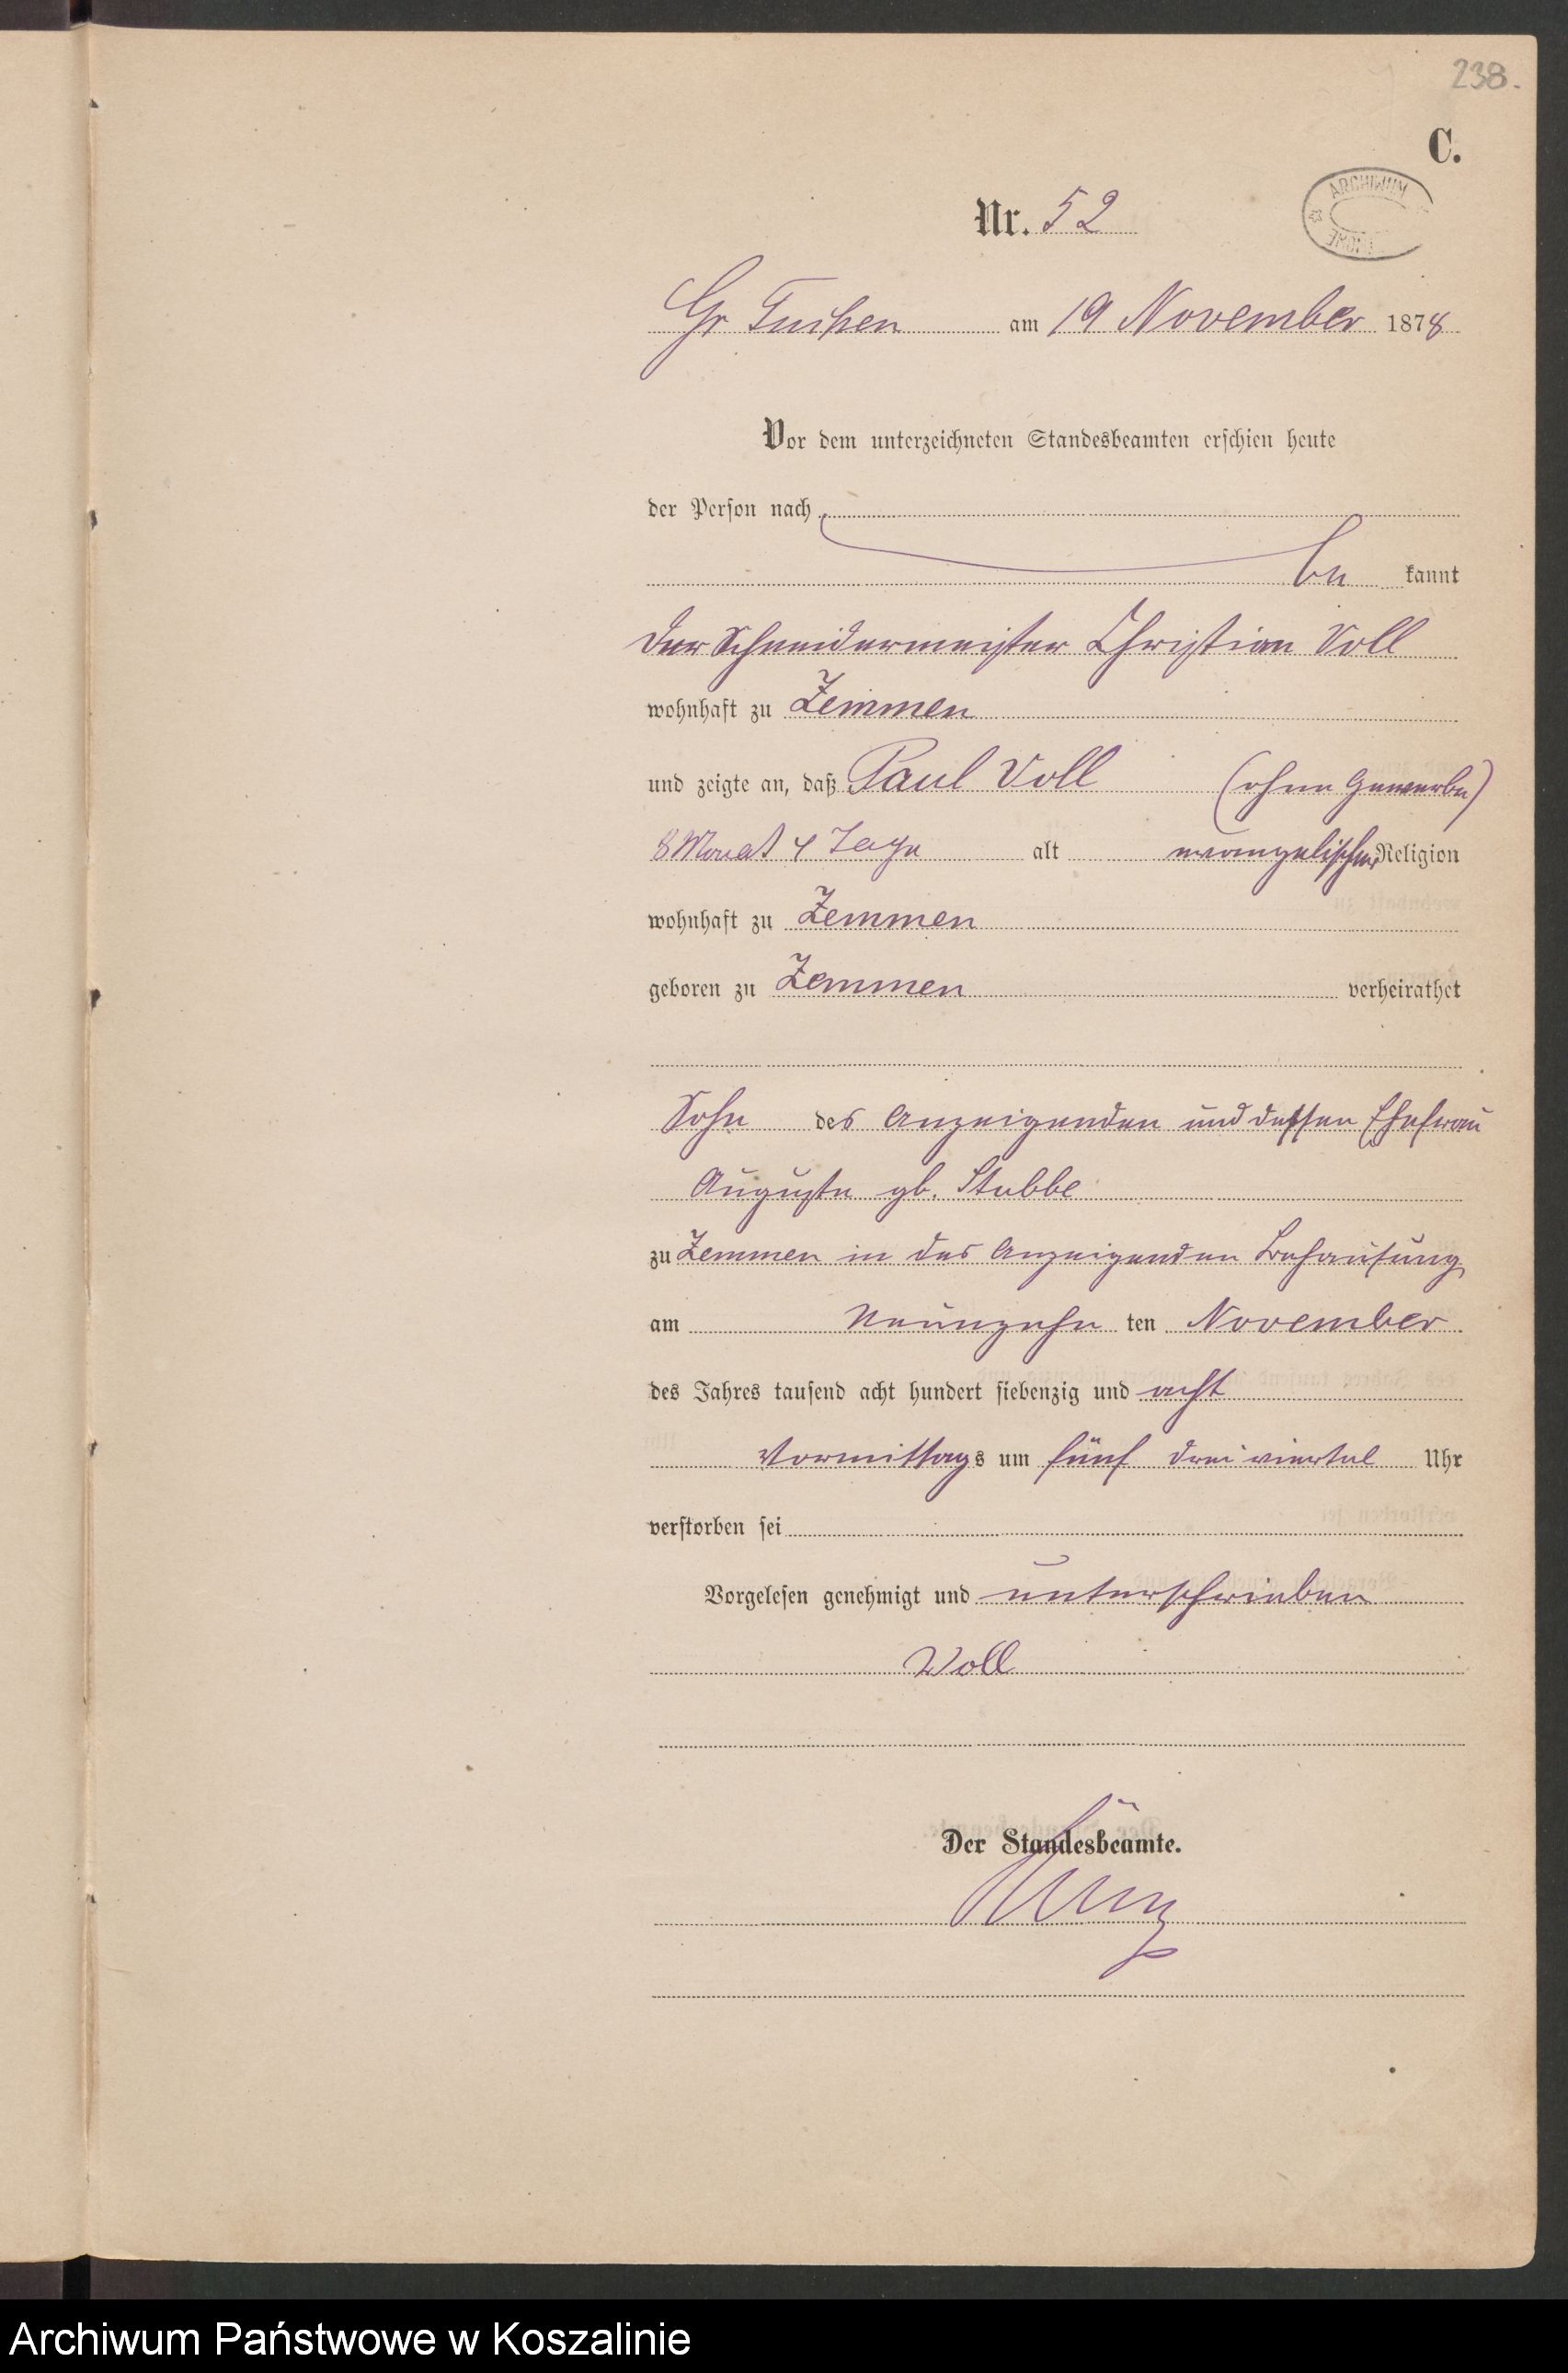 238.
C.
ARCHIWUM
Nr. 52
Gr Tuchen am 19 November 1878
Vor dem unterzeichneten Standesbeamten erschien heute
der Person nach
be kannt
der Schneidermeister Christian Voll
wohnhaft zu Zemmen
und zeigte an, daß Paul Voll (ohne Gewerbe)
8 Monat 4 Tage alt evangelischer Religion
wohnhaft zu Zemmen
geboren zu Zemmen verheirathet
Sohn des Anzeigenden und dessen Ehefrau
Auguste gb. Stubbe
zu Zemmen in des Anzeigenden Behausung
am Neunzehn ten November
des Jahres tausend acht hundert siebenzig und acht
Vormittags um fünf drei viertel Uhr
verstorben sei
Vorgelesen genehmigt und unterschrieben
Voll
Der Standesbeamte.
Archiwum Państwowe w Koszalinie